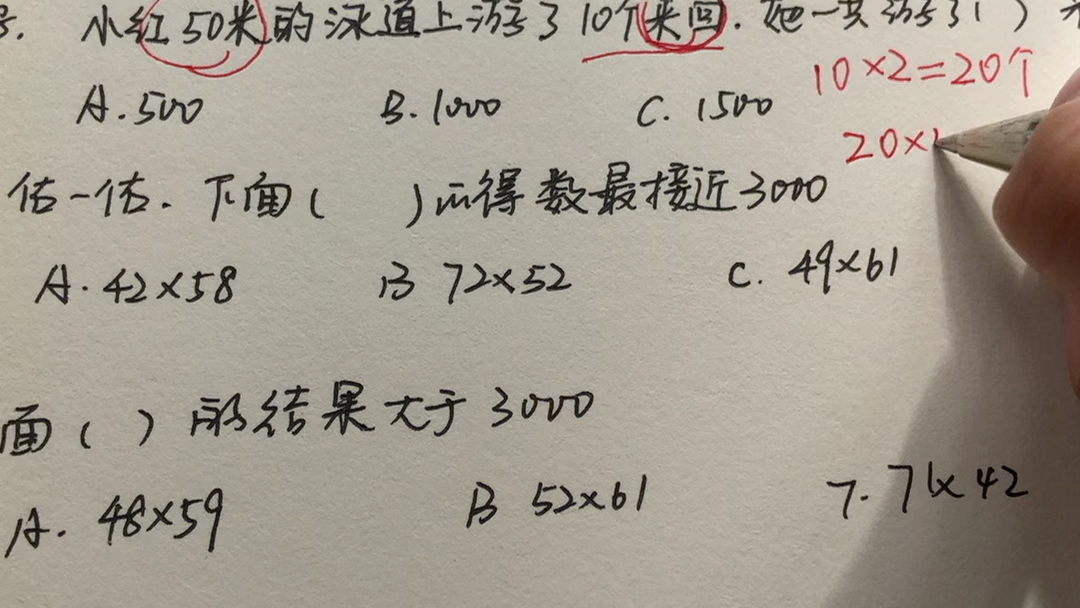 小红50米的泳道上游了10个来回.她一共游了( )
10×2=20个
A.500 B.1000 C.1500
20×
估一估.下面( )的得数最接近3000
A.42×58 B 72×52 C.49×61
面( )的结果大于3000
A.48×59 B 52×61 7.71×42